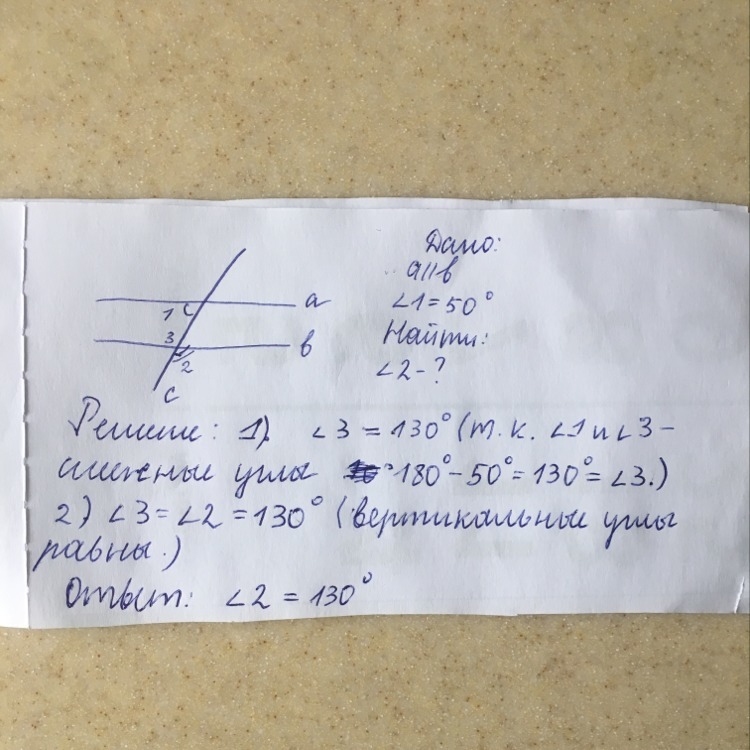 Дано:
a||b
∠1=50°
Найти:
∠2-?
a
1
3
b
2
c
Решение: 1). ∠3 = 130° (т.к. ∠1 и ∠3 -
смежные углы 180° - 50° = 130° = ∠3.)
2) ∠3 = ∠2 = 130° (вертикальные углы
равны.)
Ответ: ∠2 = 130°